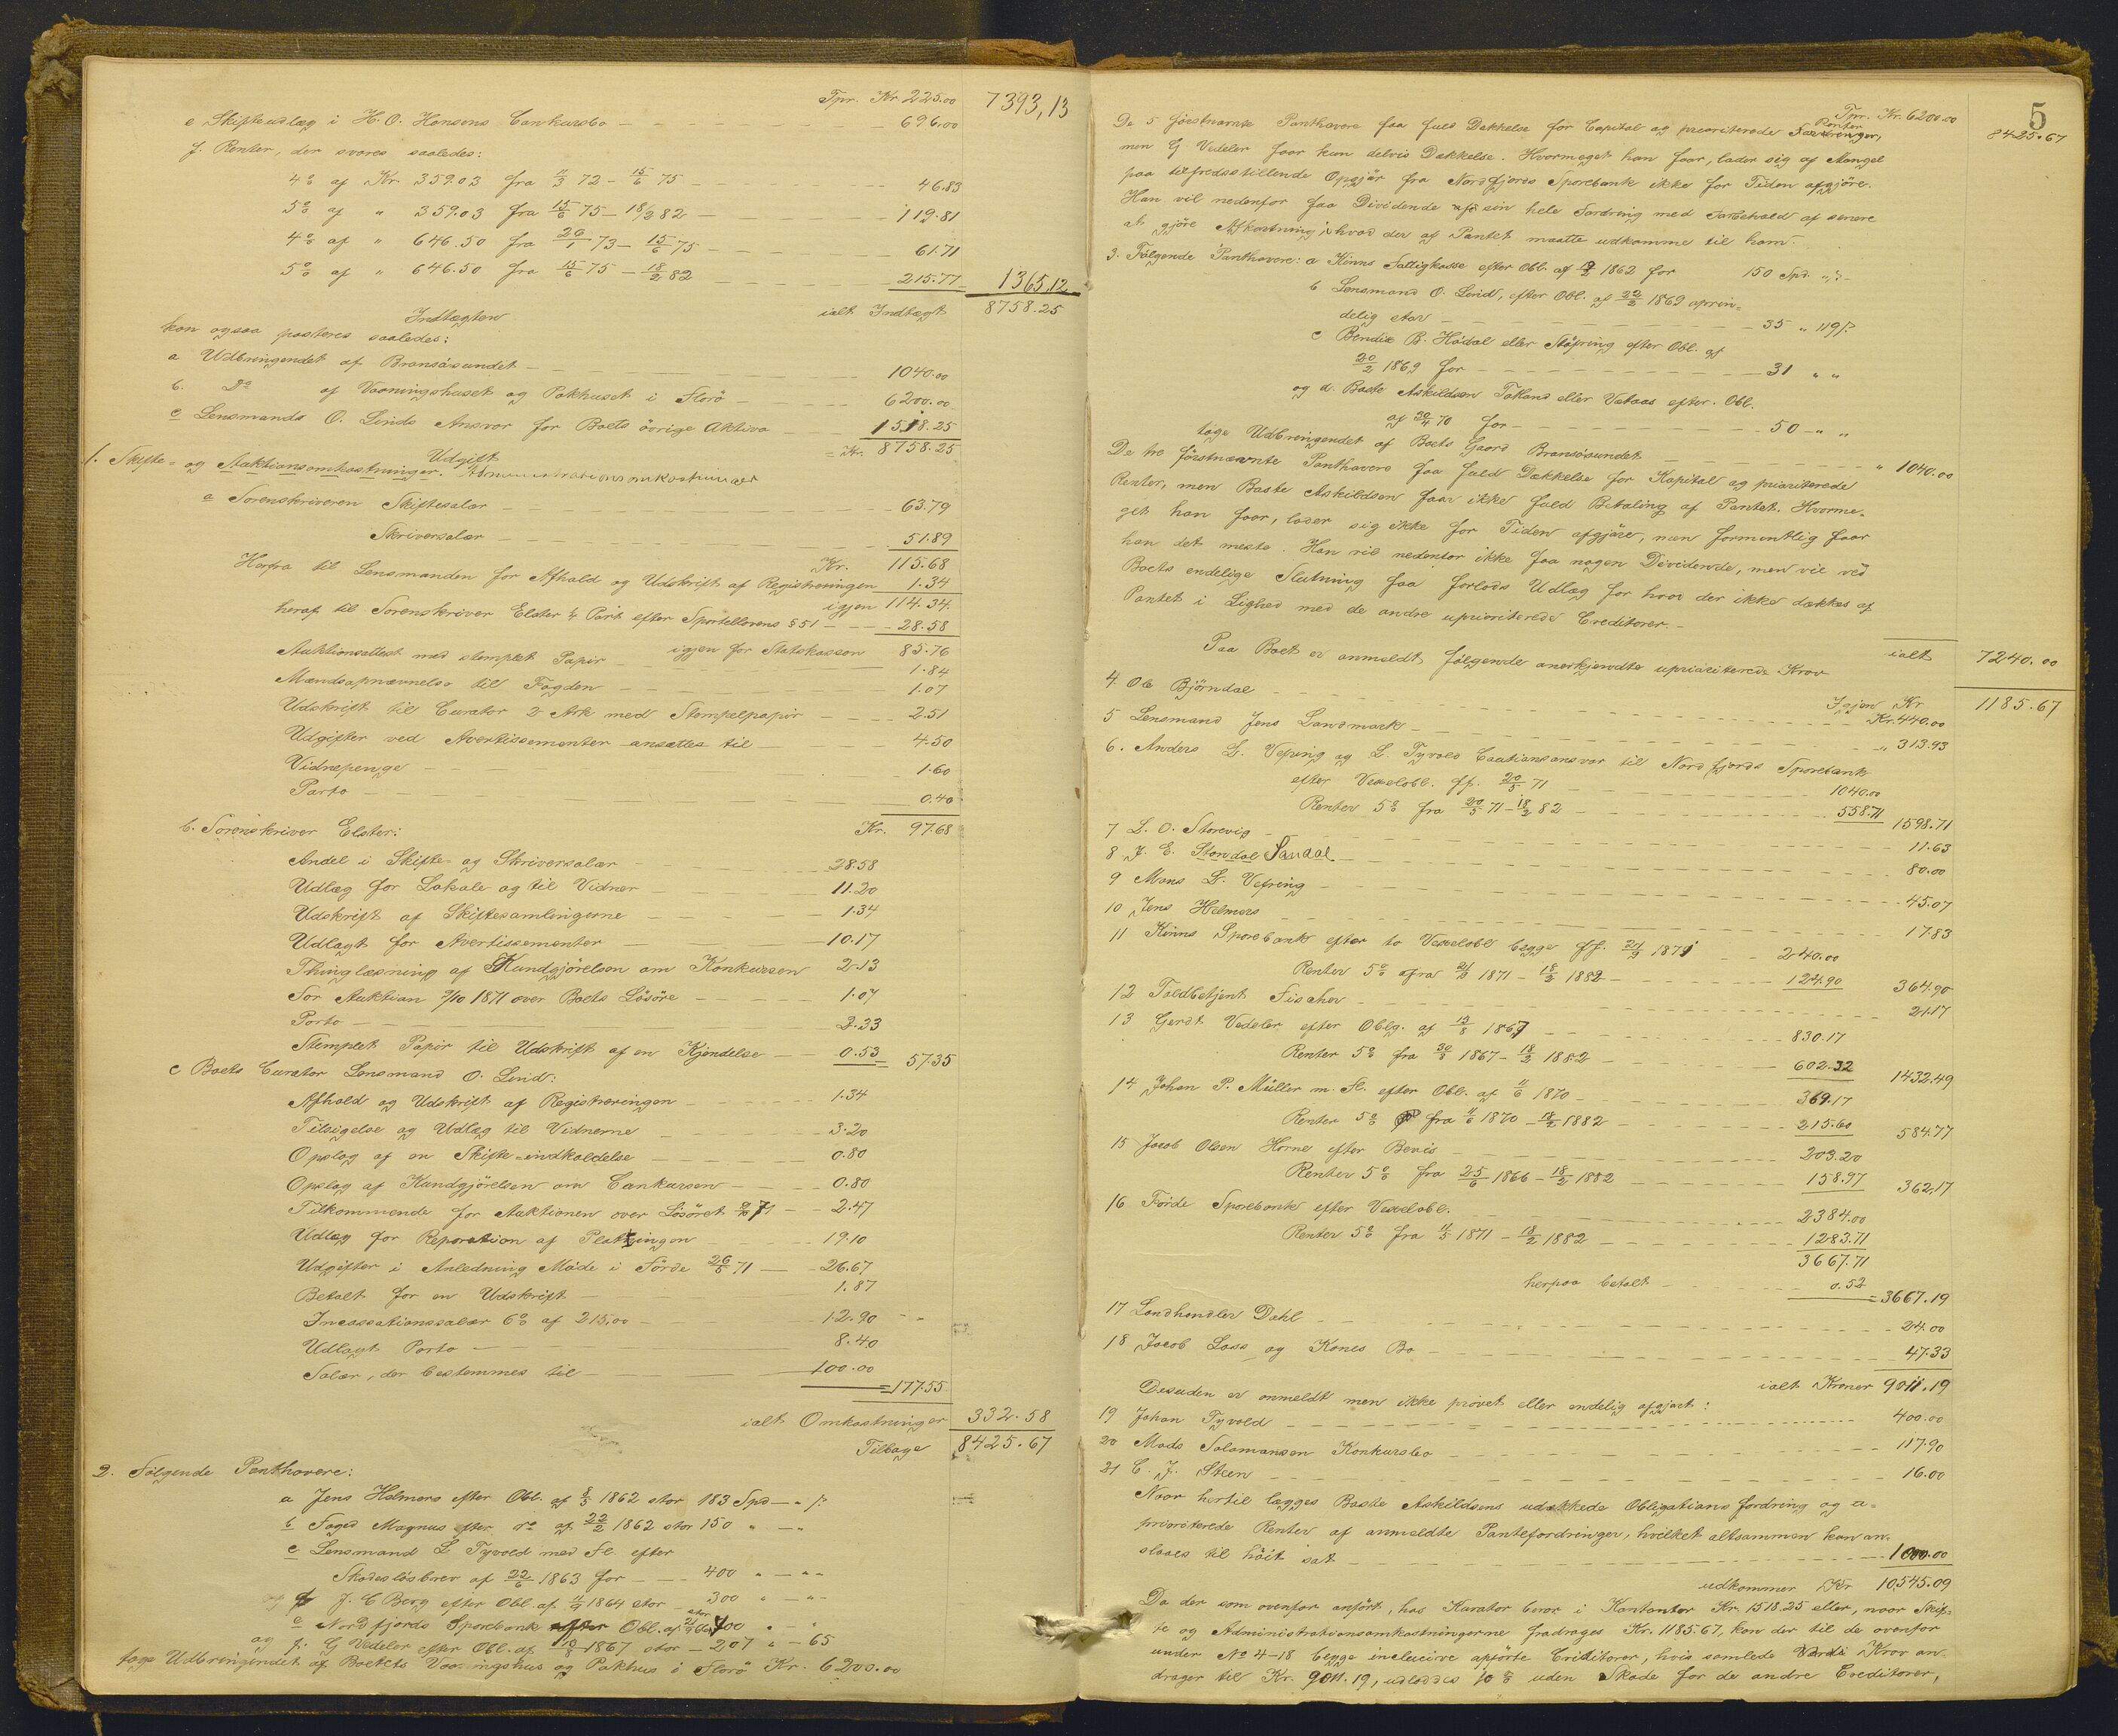 Tpr. Kr 225.00 7393,13
e Skifteudlæg i H. O. Hansens Concursbo — 696.00
f. Renter, der svares saaledes:
4% af Kr 359.03 fra 11/3 72 - 15/6 75 — 46.83
5% af " 359.03 fra 15/6 75 - 18/2 82 — 119.81
4% af " 646.50 fra 26/1 73 - 15/6 75 — 61.71
5% af " 646.50 fra 15/6 75 - 18/2 82 — 215.77 1365.12
ialt Indtægt 8758.25
Indtægten
kan ogsaa posteres saaledes:
a Udbringendet af Bransösundet — 1040.00
b. Do af Vaaningshuset og Pakhuset i Florö — 6200.00
c Lensmands O. Linds Ansvar for Boets övrige Aktiva 1518.25
= Kr. 8758.25
Udgift
1. Skifte- og Auktionsomkostninger. Administrationsomkostninger
a Sorenskriveren Skiftesalær — 63.79
Skriversalær — 51.89
Kr. 115.68
Herfra til Lensmanden for Afhold og Udskrift af Registreringen 1.34
igjen 114.34
heraf til Sorenskriver Elster 1/4 Part efter Sportellovens § 51 — 28.58
igjen for Statskassen 85.76
Auktionsattest med stemplet Papir — 1.84
Mændsopnævnelse til Fogden — 1.07
Udskrift til Curator 2 Ark med Stempelpapir — 2.51
Udgifter ved Avertissementer ansættes til — 4.50
Vidnepenge — 1.60
Porto — 0.40
Kr. 97.68
b. Sorenskriver Elster:
Andel i Skifte- og Skriversalær — 28.58
Udlæg for Lokale og til Vidner — 11.20
Udskrift af Skiftesamlingerne — 1.34
Udlagt for Avertissementer — 10.17
Thinglæsning af Kundgjørelsen om Konkursen 2.13
For Auktion 9/10 1871 over Boets Lösöre — 1.07
Porto — 2.33
Stemplet Papir til Udskrift af en Kjendelse — 0.53 = 57.35
c Boets Curator Lensmand O. Lind:
Afhold og Udskrift af Registreringen — 1.34
Tilsigelse og Udlæg til Vidnerne — 3.20
Opslag af en Skifte-indkaldelse — 0.80
Opslag af Kundgjörelsen om Concursen — 0.80
Tilkommende for Auktionen over Lösöret 9/10 71 — 2.47
Udlæg for Reparation af — 19.10
Udgifter i Anledning Möde i Förde 26/5 71 — 26.67
Betalt for en Udskrift — 1.87
Incassationssalær 6% af 215,00 — 12.90
Udlagt Porto — 8.40
Salær, der bestemmes til — 100.00
= 177.55
ialt Omkostninger 332.58
Tilbage 8425.67
2. Følgende Panthavere:
a Jens Helmers efter Obl. af 8/5 1862 stor 183 Spd — " ß
b Foged Magnus efter do af 22/2 1862 stor 150 " — "
c Lensmand L Tyvold med Fl. efter
Skadeslösbrev af 22/6 1863 for — 400 " — "
J. C Berg efter Obl. af 11/9 1864 stor — 300 " — "
e Nordfjords Sparebank efter Obl. af stor 400 " "
og f. G Vedeler efter Obl. af 13/8 1867 stor — 207 " — 65
tage Udbringendet af Boets Vaaningshus og Pakhus i Florö Kr. 6200.00
5
Tpr. Kr. 6200.00 8425.67
De 5 förstnævnte Panthavere faa fuld Dækkelse for Capital og prioriterede Renter,
men G Vedeler faar kun delvis Dækkelse. Hvormeget han faar, lader sig af Mangel
paa tilfredsstillende Opgjör fra Nordfjords Sparebank ikke for Tiden afgjöre.
Han vil nedenfor faa Dividende af sin hele Fordring med Forbehold af senere
at gjöre Afkortning i hvad der af Pantet maatte udkomme til ham.
3. Følgende Panthavere: a Kinns Fattigkasse efter Obl. af 1862 for 150 Spd. " ß
b Lensmand O. Lind, efter Obl. af 22/2 1869 oprin-
delig stor — 35 " 119 ß
c Bendix B. Hödal eller Stöfring efter Obl. af
20/2 1869 for — 31 " "
og d. Baste Askildsen Tokland eller Vataas efter. Obl.
af 30/4 70 for — 50 — " "
tage Udbringendet af Boets Gaard Bransösundet — " 1040.00
De tre förstnævnte Panthavere faa fuld Dækkelse for Kapital og prioriterede
Renter, men Baste Askildsen faar ikke fuld Betaling af Pantet. Hvorme-
get han faar, lader sig ikke for Tiden afgjöre, men formentlig faar
han det meste. Han vil nedenfor ikke faa nogen Dividende, men vil ved
Boets endelige Slutning faa forlods Udlæg for hvad der ikke dækkes af
Pantet i Lighed med de andre uprioriterede Creditorer. -
ialt 7240.00
Igjen Kr 1185.67
Paa Boet er anmeldt følgende anerkjendte uprioriterede Krav
4. Ole Björndal — Kr. 440.00
5 Lensmand Jens Landmark — " 313.93
6. Anders L. Vefring og L. Tyvold Cautionsansvar til Nordfjords Sparebank
efter Vexelobl. ff. 20/5 71 — 1040.00
Renter 5% fra 20/5 71 - 18/2 82 — 558.71 1598.71
7 L. O. Storevig — 11.63
8 J. E. Standal Sandal — 80.00
9 Mons L. Vefring — 45.07
10 Jens Helmers — 17.83
11 Kinns Sparebank efter to Vexelobl begge ff. 21/9 1871 — 240.00
Renter 5% fra 21/9 1871 - 18/2 1882 — 124.90 364.90
12 Toldbetjent Fischer — 21.17
13 Gerdt Vedeler efter Oblg. af 13/8 1867 — 830.17
Renter 5% fra 30/8 1867 - 18/2 1882 — 602.32 1432.49
14 Johan P. Müller m. Fl. efter Obl. af 11/6 1870 — 369.17
Renter 5% fra 11/6 1870 - 18/2 1882 — 215.60 584.77
15 Jacob Olsen Horne efter Bevis — 203.20
Renter 5% fra 25/6 1866 - 18/2 1882 — 158.97 362.17
16 Förde Sparebank efter Vexelobl. — 2384.00
Renter 5% fra 11/5 1871 - 18/2 1882 — 1283.71
3667.71
herpaa betalt — 0.52 = 3667.19
17 Landhandler Dahl — 24.00
18 Jacob Lass og Kones Bo — 47.33
ialt Kroner 9011.19
Desuden er anmeldt men ikke prövet eller endelig afgjort:
19 Johan Tyvold — 400.00
20 Mads Salamonsen Konkursbo — 117.90
21 C. J. Steen — 16.00
Naar hertil lægges Baste Askildsens udækkede Obligationsfordring og u-
prioriterede Renter af anmeldte Pantefordringer, hvilket altsammen kan an-
slaaes til höit sat — 1000.00
udkommer Kr 10,545.09
Da der som ovenfor anfört, hos Kurator beror i Kontanter Kr. 1518.25 eller, naar Skif-
te og Administrationsomkostningerne fradrages Kr. 1185.67, kan der til de ovenfor
under No 4-18 begge inclusive opförte Creditorer, hvis samlede Krav an-
drager til Kr. 9011.19, udloddes 10% uden Skade for de andre Creditorer,